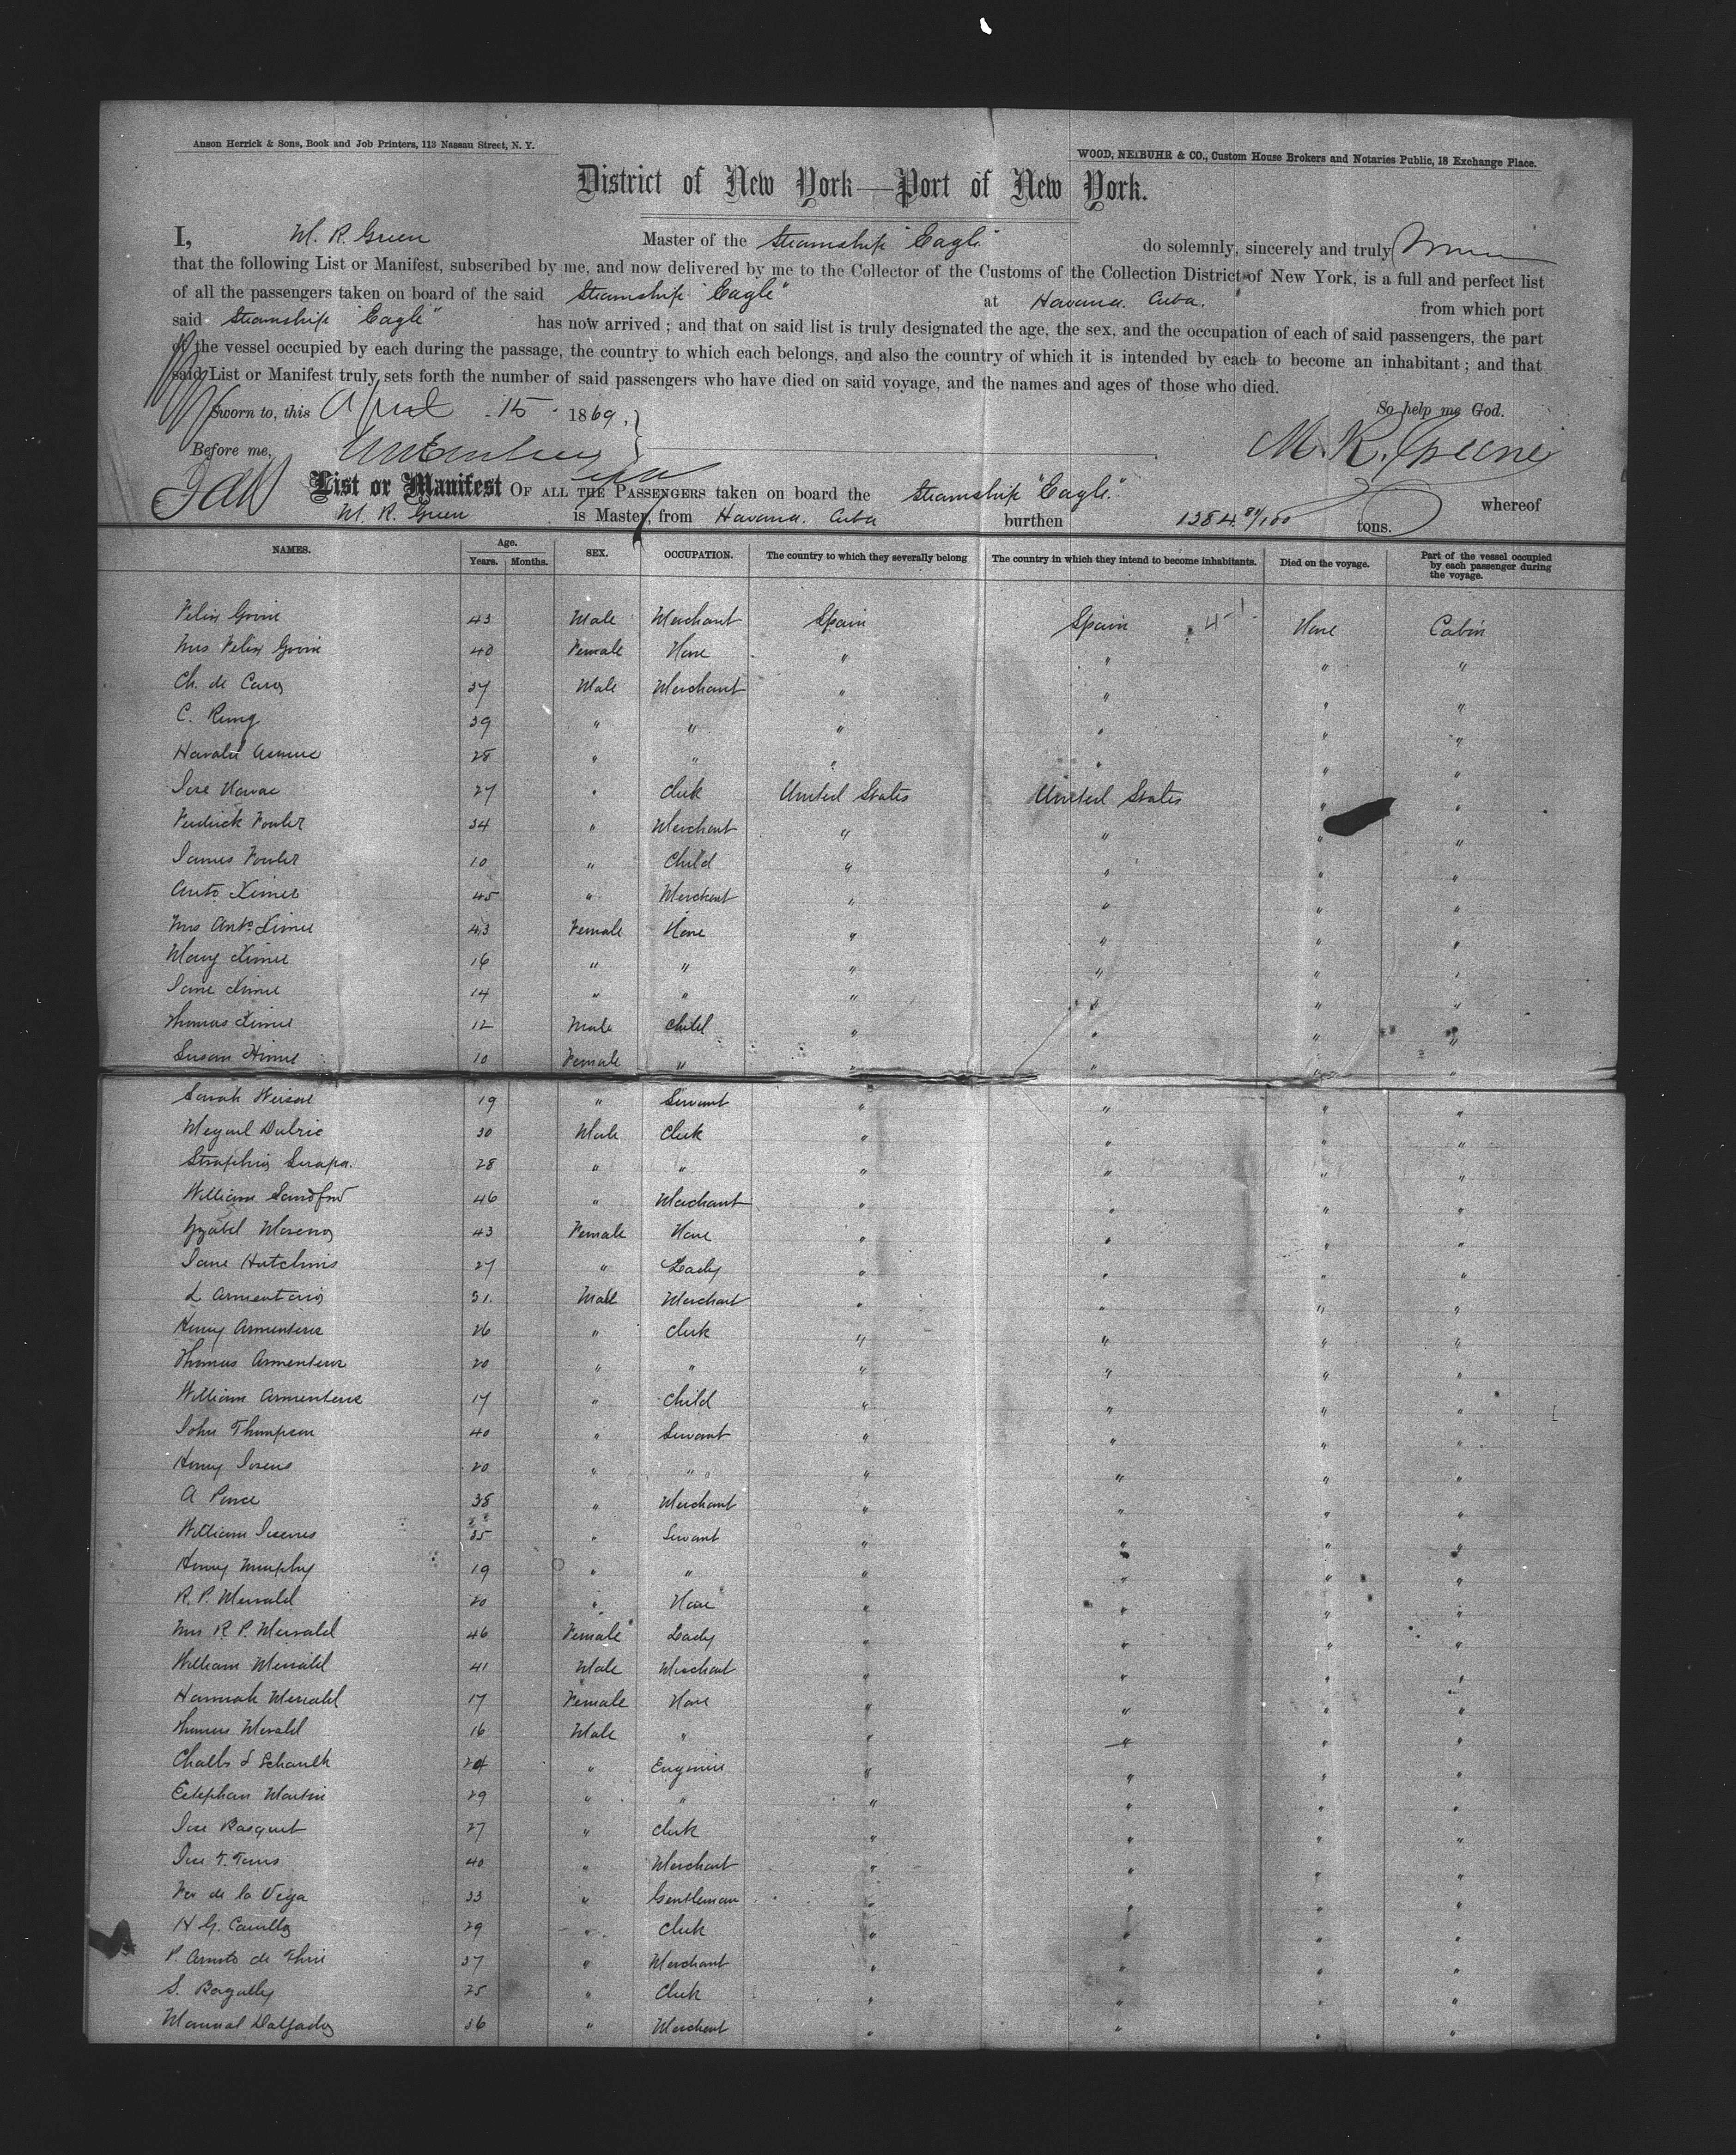 Anson Herrick & Sons, Book and Job Printers, 113 Nassau Street, N. Y.
WOOD, NEIBUHR & CO., Custom House Brokers and Notaries Public, 18 Exchange Place.
District of New York—Port of New York.
I, M. R. Green Master of the Steamship "Eagle" do solemnly, sincerely and truly
that the following List or Manifest, subscribed by me, and now delivered by me to the Collector of the Customs of the Collection District of New York, is a full and perfect list
of all the passengers taken on board of the said Steamship "Eagle" at Havana. Cuba. from which port
said Steamship "Eagle" has now arrived; and that on said list is truly designated the age, the sex, and the occupation of each of said passengers, the part
of the vessel occupied by each during the passage, the country to which each belongs, and also the country of which it is intended by each to become an inhabitant; and that
said List or Manifest truly sets forth the number of said passengers who have died on said voyage, and the names and ages of those who died.
Sworn to, this April 15 1869. So help me God.
Before me, M. R. Greene
List or Manifest OF ALL THE PASSENGERS taken on board the Steamship "Eagle." whereof
M. R. Green is Master, from Havana. Cuba burthen 1284 81/100 tons.
NAMES. Age. Years. Months. SEX. OCCUPATION. The country to which they severally belong The country in which they intend to become inhabitants. Died on the voyage. Part of the vessel occupied by each passenger during the voyage.
Felix Govin 43 Male Merchant Spain Spain None Cabin
Mrs Felix Govin 40 Female None " " " "
Ch. de Caro 37 Male Merchant " " " "
C. 39 " " " " " "
28 " " " " " "
Jose 27 " Clerk United States United States " "
Fedrick Fowler 34 " Merchant " " " "
James Fowler 10 " Child " " " "
Anto Ximer 45 " Merchant " " " "
Mrs Anto Ximer 43 Female None " " " "
Mary Ximer 16 " " " " " "
Jane Ximer 14 " " " " " "
Thomas Ximer 12 Male Child " " " "
Susan 10 Female " " " " "
Sarah 19 " Servant " " " "
30 Male Clerk " " " "
28 " " " " " "
William Sandford 46 " Merchant " " " "
Yzabel Moreno 43 Female None " " " "
Jane Hutchins 27 " Lady " " " "
L Armentero 31. Male Merchant " " " "
Henry Armenteros 26 " Clerk " " " "
Thomas Armenteros 20 " " " " " "
William Armenteros 17 " Child " " " "
John Thompson 40 " Servant " " " "
Henry 20 " " " " " "
A Ponce 38 " Merchant " " " "
William 35 " Servant " " " "
Henry Murphy 19 " " " " " "
R. P. 20 " None " " " "
Mrs R P. 46 Female Lady " " " "
William 41 Male Merchant " " " "
Hannah 17 Female None " " " "
Thomas 16 Male " " " " "
24 " Engineer " " " "
Estephan Martin 29 " " " " " "
Jose Basquet 27 " Clerk " " " "
Jose F. 40 " Merchant " " " "
de la Vega 33 " Gentleman " " " "
H G. 29 " Clerk " " " "
P. de 37 " Merchant " " " "
S. 25 " Clerk " " " "
Manual Dalgado 36 " Merchant " " " "